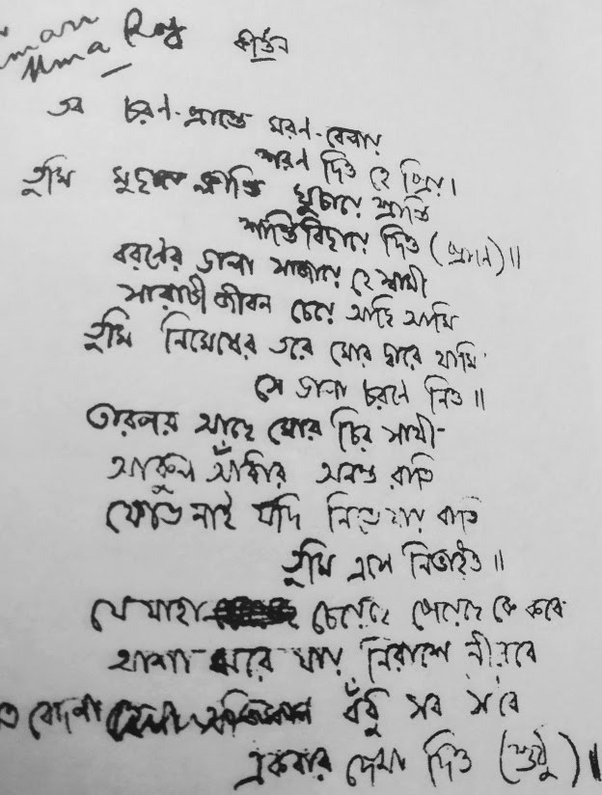 Uma Roy
কীর্তন
তব চরণ-প্রান্তে মরণ-বেলায়
শরণ দিও হে প্রিয়।
তুমি মুছায়ে ক্লান্তি ঘুচায়ে শ্রান্তি
শান্তি বিছায়ে দিও (প্রাণে)॥
বরণের ডালা সাজায়ে হে স্বামী
সারাটী জীবন চেয়ে আছি আমি
তুমি নিমেষের তরে মোর দ্বারে থামি
সে ডালা চরণে নিও॥
তারপর আছে মোর চির সাথী
আকুল আঁধার অনন্ত রাতি
ক্ষোভ নাই যদি নিভে যায় বাতি
তুমি এসে নিভাইও॥
যে যাহা চেয়েছে পেয়েছে কে কবে
আশা ঝরে যায় নিরাশে নীরবে
বেদনা বঁধু সব সবে
একবার দেখা দিও (শুধু)॥